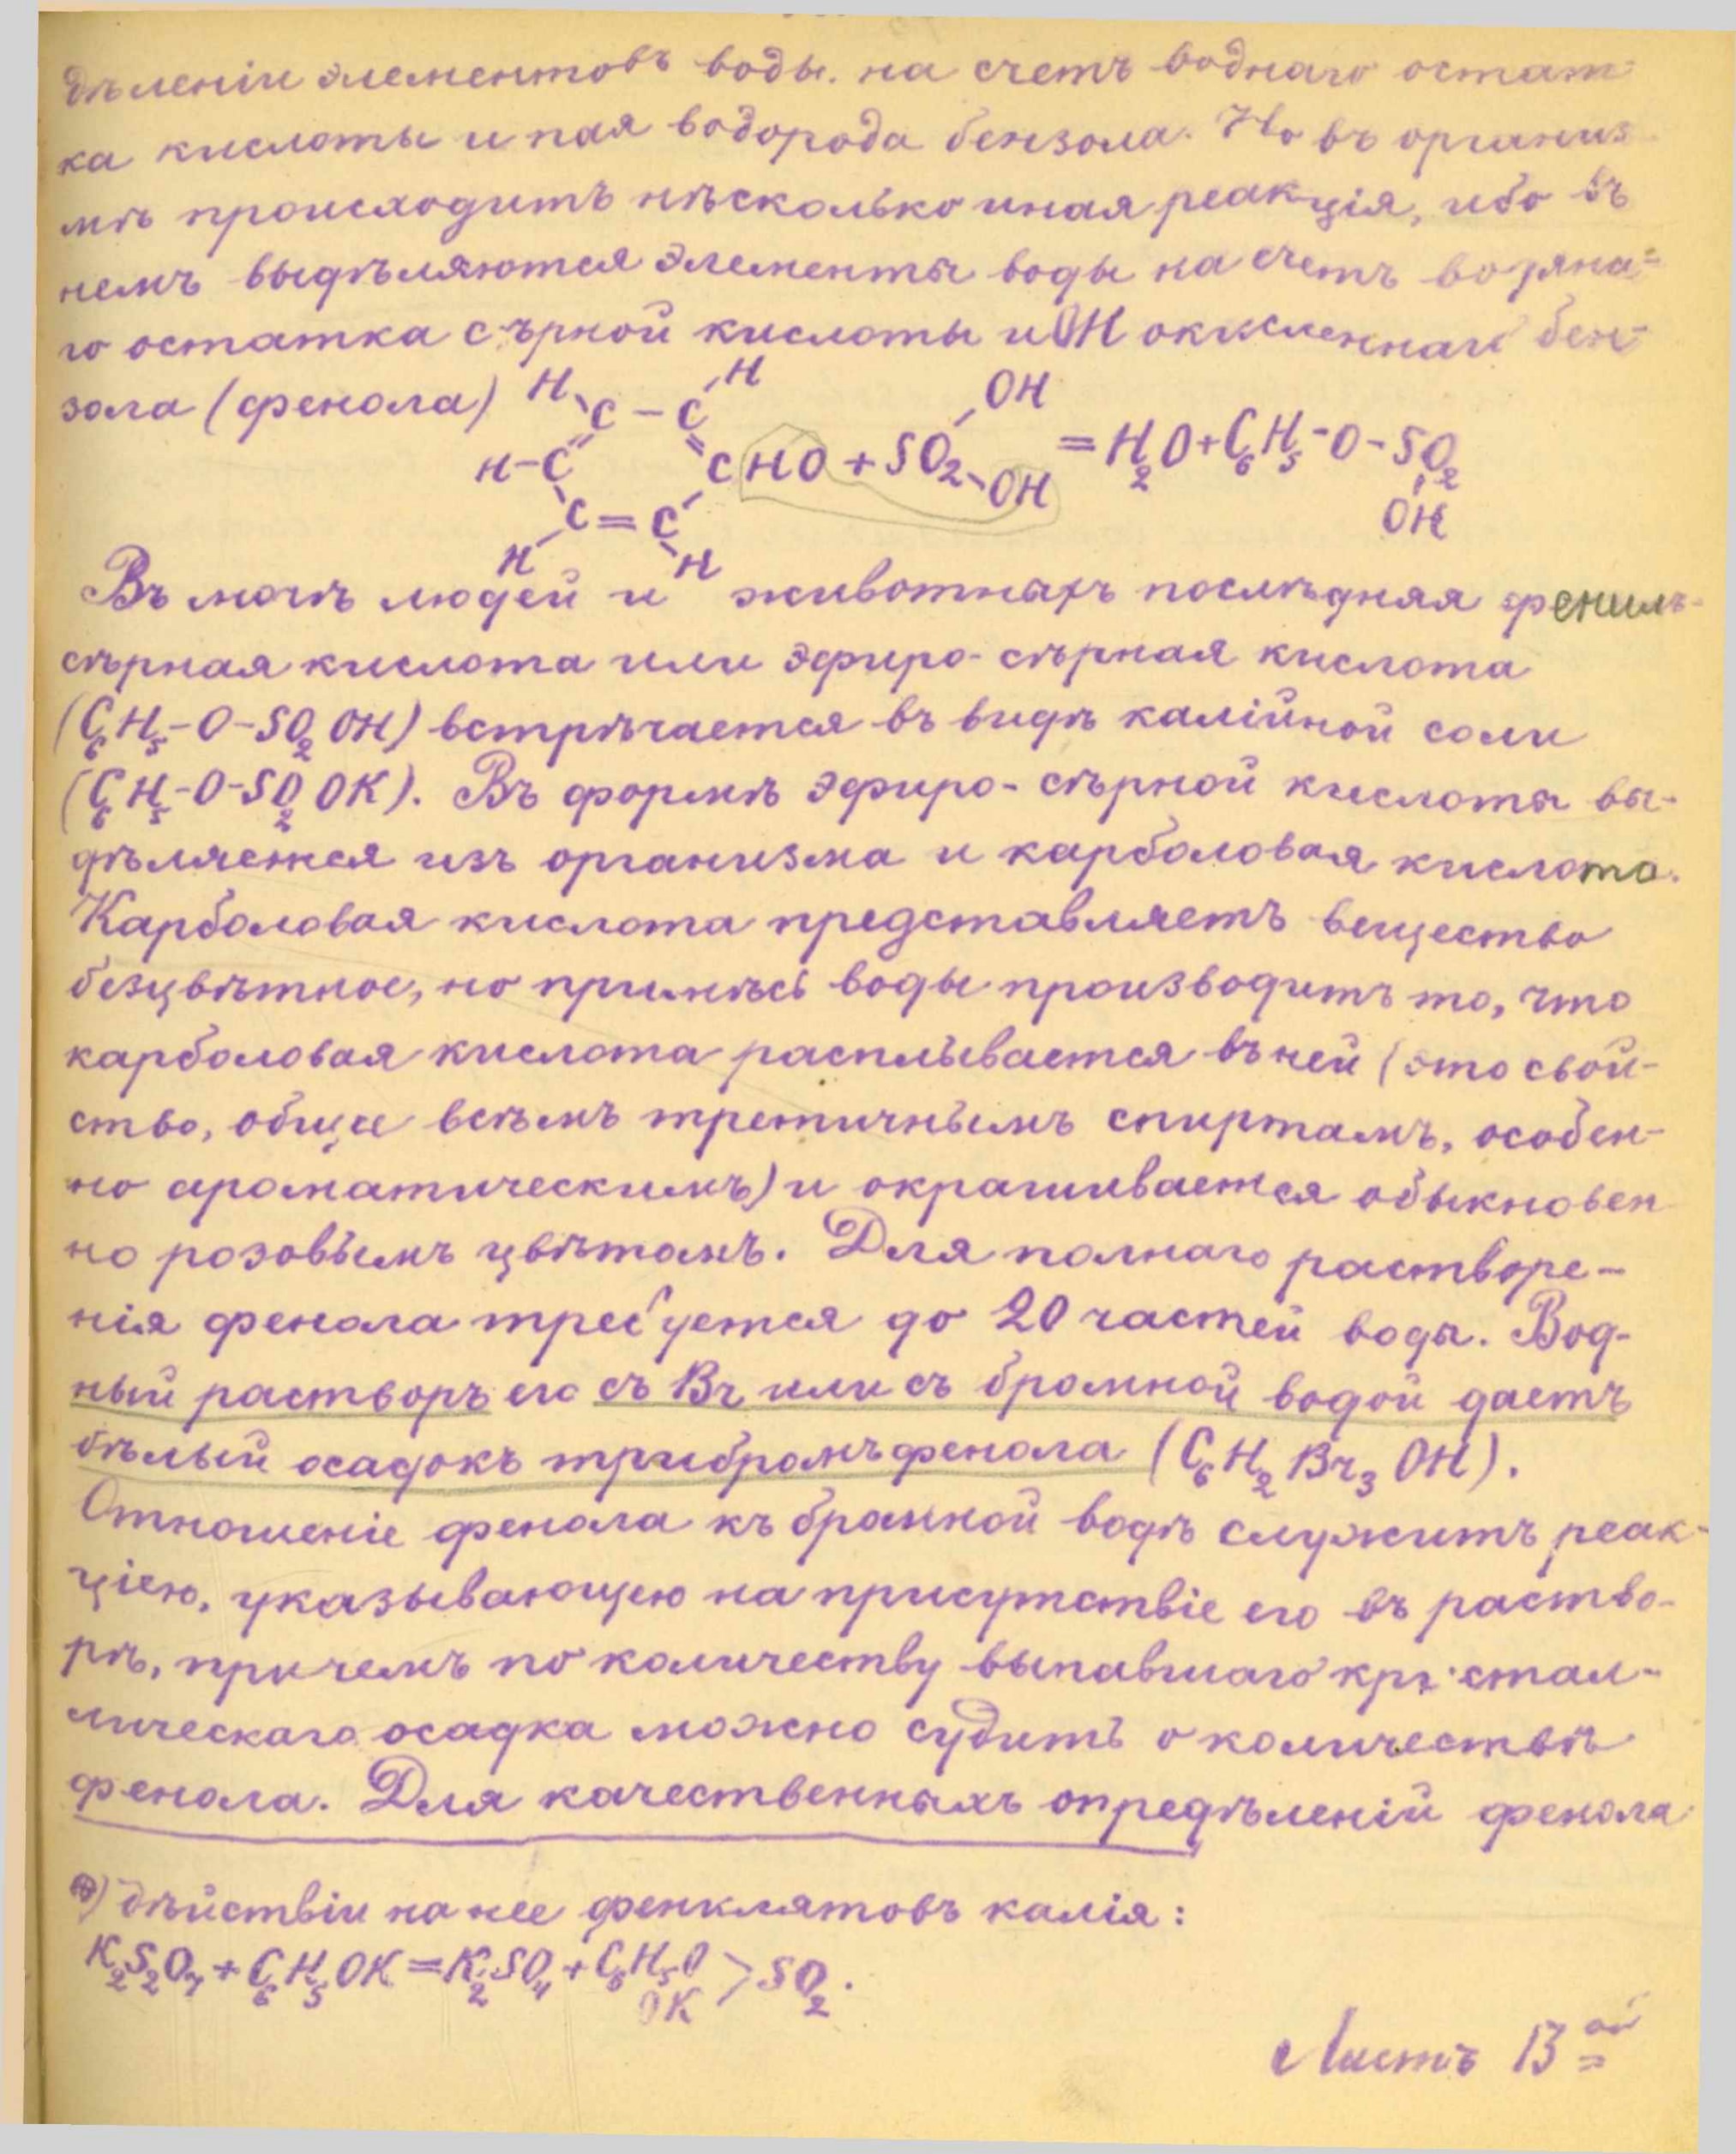 дѣленіи элементовъ воды. на счетъ воднаго остат
ка кислоты и пая водорода бензола. Но въ организ
мѣ происходитъ нѣсколько иная реакція, ибо въ
немъ выдѣляются элементы воды на счетъ водяна=
го остатка сѣрной кислоты и OH окисленнаго бен-
зола (фенола) H H OH
C – C
H–C C HO + SO₂ = H₂O + C₆H₅–O–SO₂
C = C OH OH
H H
Въ мочѣ людей и животныхъ послѣдняя фенилъ-
сѣрная кислота или эфиро-сѣрная кислота
(C₆H₅–O–SO₂OH) встрѣчается въ видѣ калійной соли
(C₆H₅–O–SO₂OK). Въ формѣ эфиро-сѣрной кислоты вы-
дѣляется изъ организма и карболовая кислота.
Карболовая кислота представляетъ вещество
безцвѣтное, но примѣсь воды производитъ то, что
карболовая кислота расплывается въ ней (это свой-
ство, общее всѣмъ третичнымъ спиртамъ, особен-
но ароматическимъ) и окрашивается обыкновен
но розовымъ цвѣтомъ. Для полнаго растворе-
нія фенола требуется до 20 частей воды. Вод-
ный растворъ его съ Br или съ бромной водой даетъ
бѣлый осадокъ трибромъфенола (C₆H₂Br₃OH).
Отношеніе фенола къ бромной водѣ служитъ реак-
ціею, указывающею на присутствіе его въ раство-
рѣ, причемъ по количеству выпавшаго кристал-
лическаго осадка можно судить о количествѣ
фенола. Для качественныхъ опредѣленій фенола
*) дѣйствіи на нее фенилятовъ калія:
K₂S₂O₇ + C₆H₅OK = K₂SO₄ + C₆H₅O > SO₂.
OK
Листъ 13ый